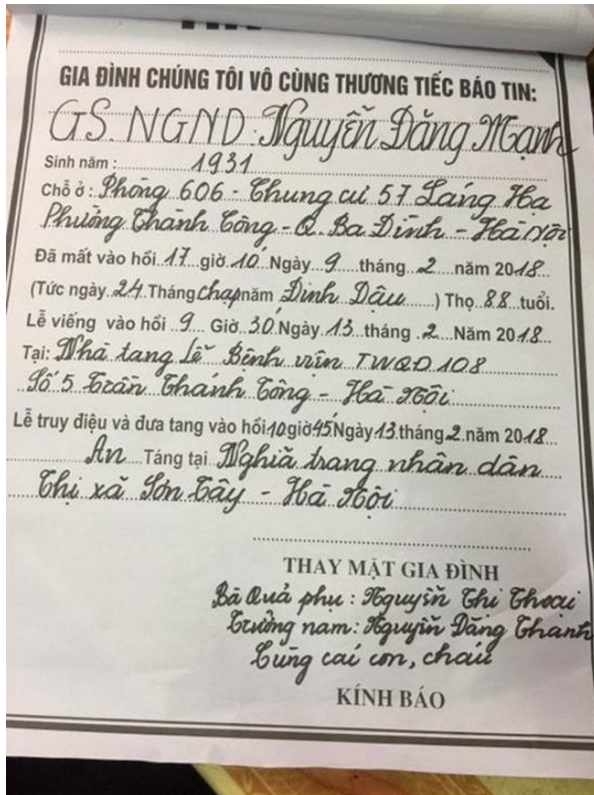 GIA ĐÌNH CHÚNG TÔI VÔ CÙNG THƯƠNG TIẾC BÁO TIN:
GS. NGND: Nguyễn Đăng Mạnh
Sinh năm: 1931
Chỗ ở: Phòng 606 - Chung cư 57 Láng Hạ
Phường Thành Công - Q. Ba Đình - Hà Nội
Đã mất vào hồi 17 giờ 10' Ngày 9 tháng 2 năm 2018
(Tức ngày 24 Tháng chạp năm Đinh Dậu) Thọ 88 tuổi.
Lễ viếng vào hồi 9 Giờ 30' Ngày 13 tháng 2 Năm 2018
Tại: Nhà tang Lễ Bệnh viện TWQĐ 108
Số 5 Trần Thánh Tông - Hà Nội
Lễ truy điệu và đưa tang vào hồi 10 giờ 45' Ngày 13 tháng 2 năm 2018
An Táng tại Nghĩa trang nhân dân
Thị xã Sơn Tây - Hà Nội
THAY MẶT GIA ĐÌNH
Bà Quả phụ: Nguyễn Thị Thoại
Trưởng nam: Nguyễn Đăng Thanh
Cùng các con, cháu
KÍNH BÁO